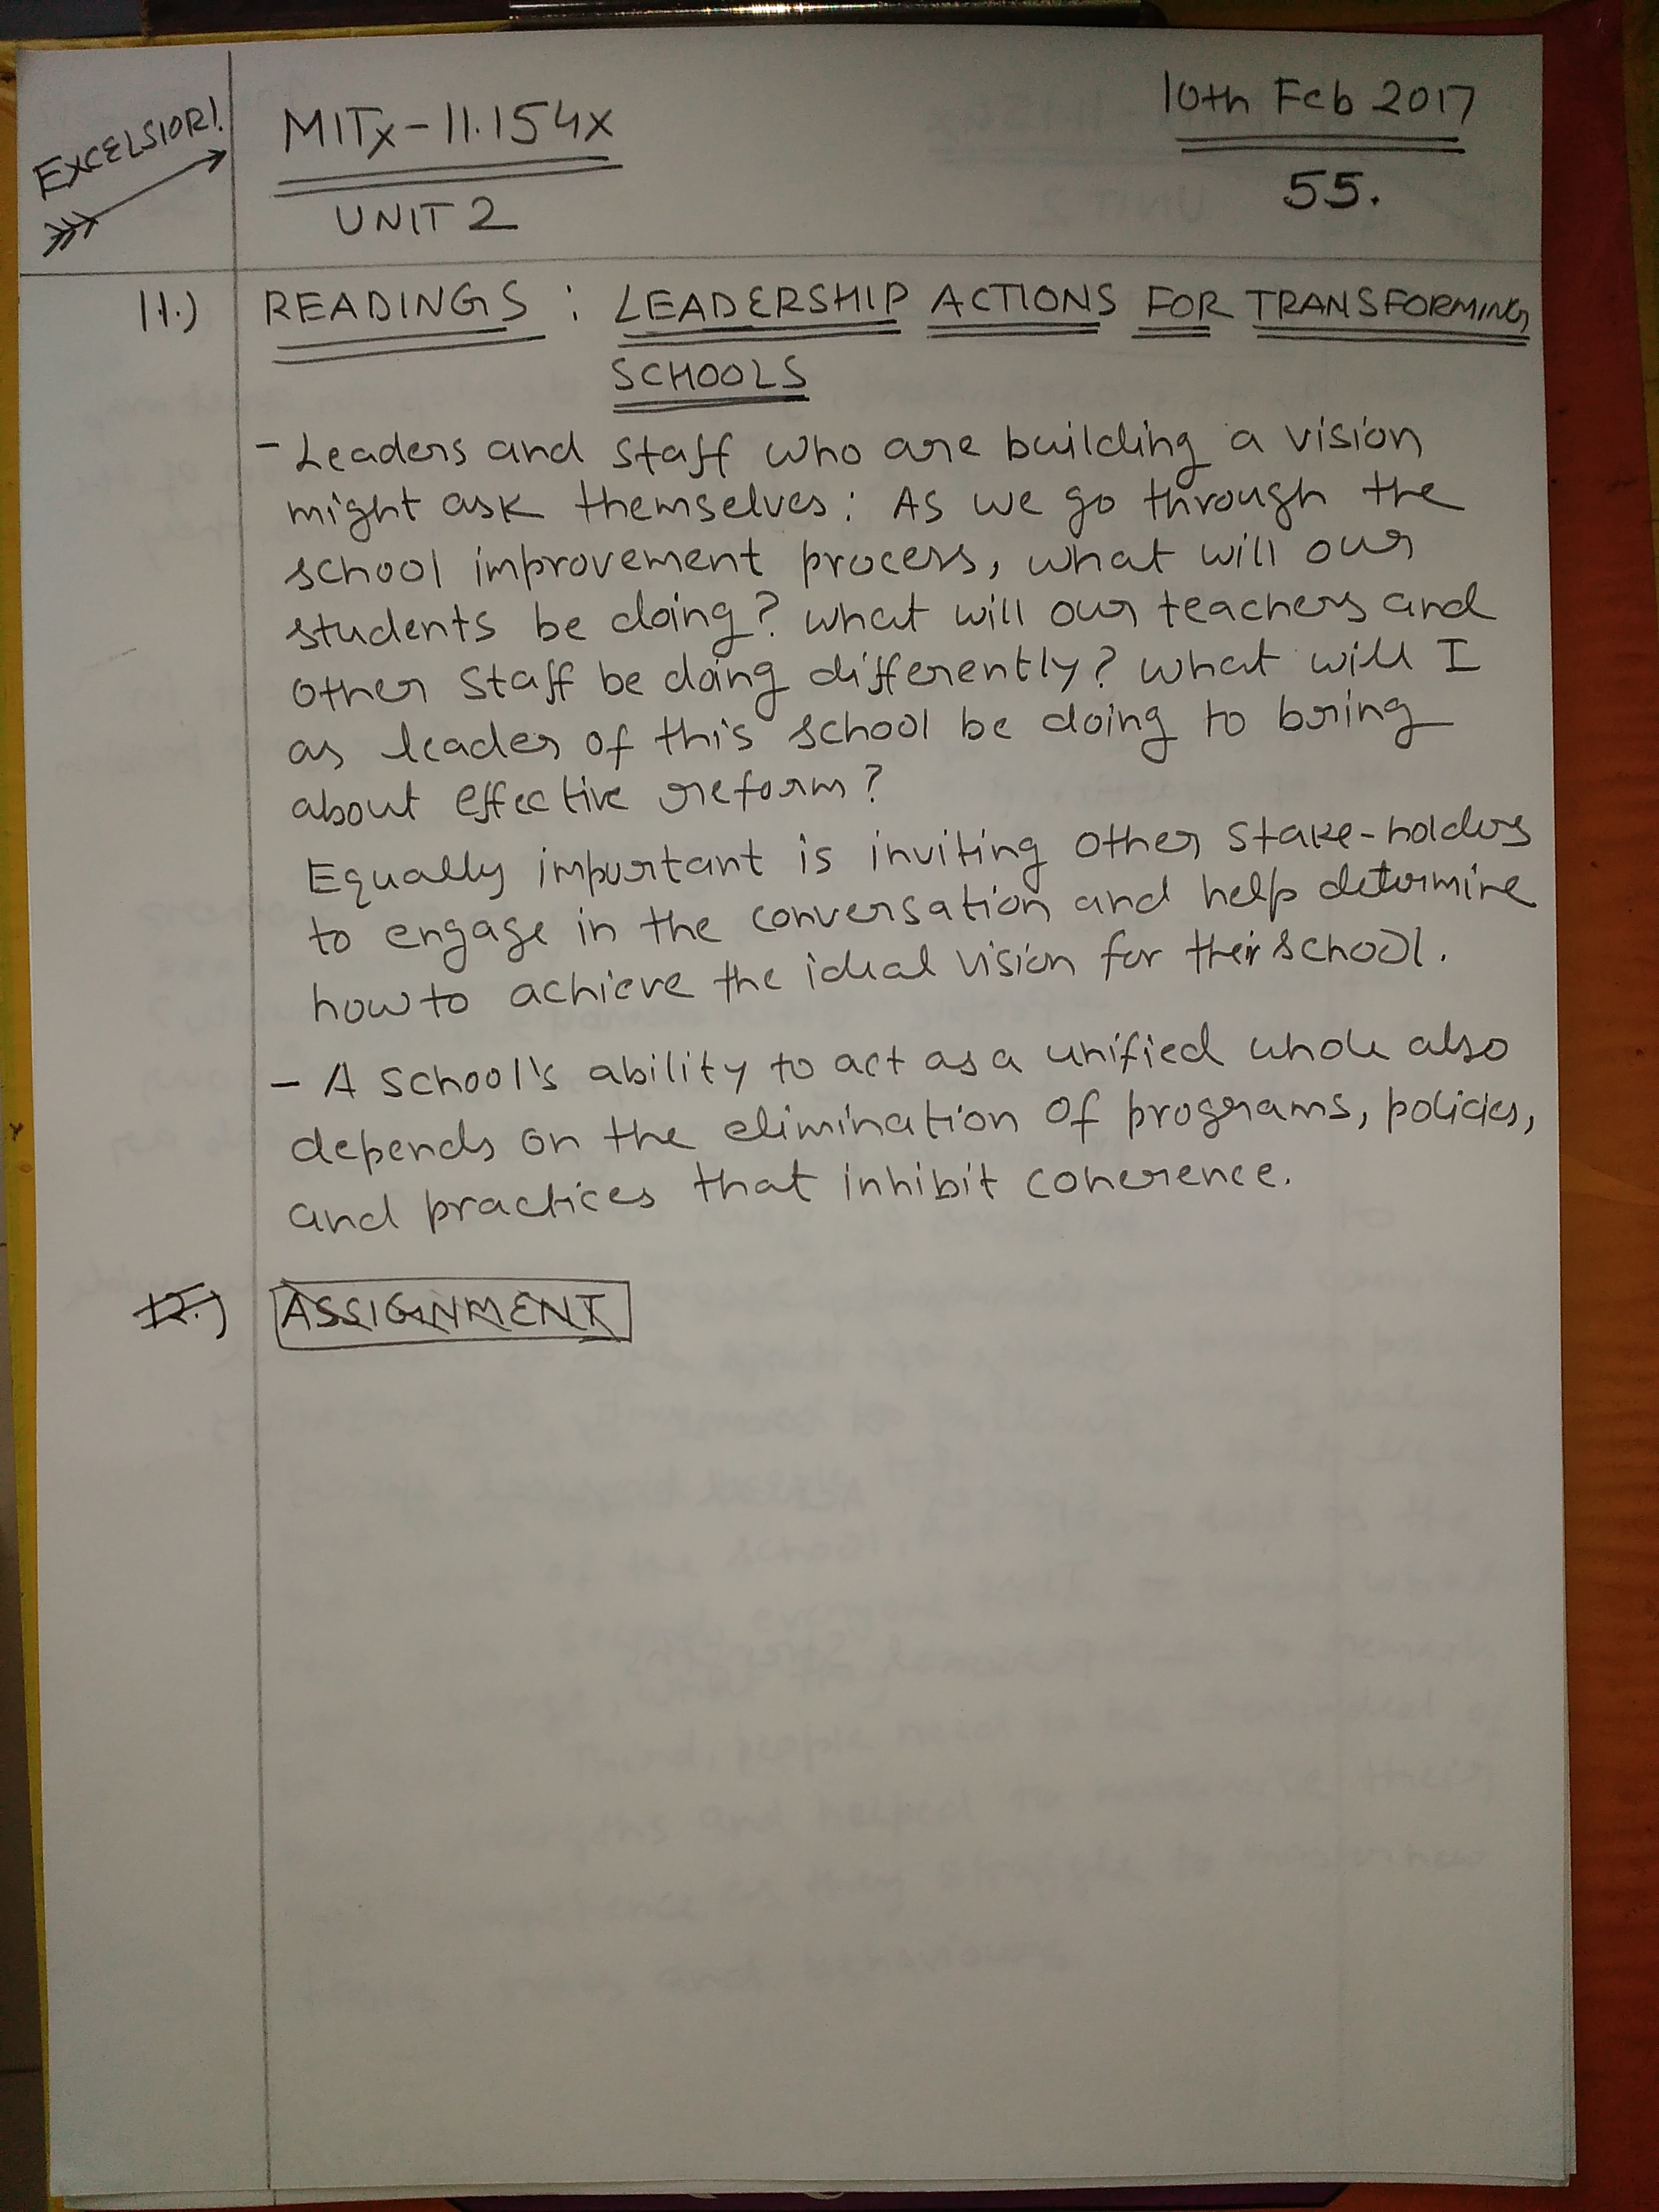 EXCELSIOR!
MITx-11.154x
UNIT 2
10th Feb 2017
55.
11.) READINGS : LEADERSHIP ACTIONS FOR TRANSFORMING
SCHOOLS
- Leaders and staff who are building a vision
might ask themselves: As we go through the
school improvement process, what will our
students be doing? what will our teachers and
other staff be doing differently? what will I
as leader of this school be doing to bring
about effective reform?
Equally important is inviting other stake-holders
to engage in the conversation and help determine
how to achieve the ideal vision for their school.
- A school's ability to act as a unified whole also
depends on the elimination of programs, policies,
and practices that inhibit coherence.
12.) ASSIGNMENT